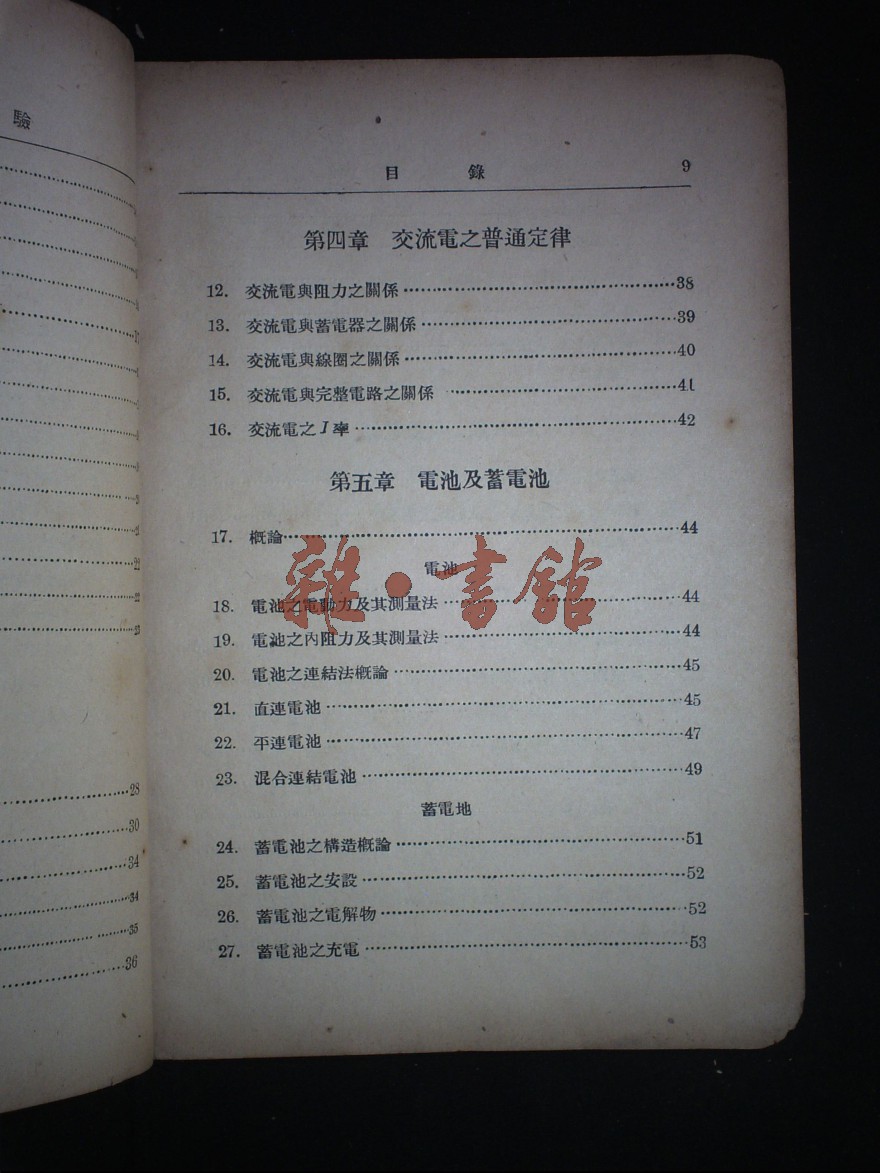 驗
17
20
21
22
22
23
28
30
34
34
35
36
目錄 9
第四章 交流電之普通定律
12. 交流電與阻力之關係 38
13. 交流電與蓄電器之關係 39
14. 交流電與線圈之關係 40
15. 交流電與完整電路之關係 41
16. 交流電之工率 42
第五章 電池及蓄電池
17. 概論 44
電池
18. 電池之電動力及其測量法 44
19. 電池之內阻力及其測量法 44
20. 電池之連結法概論 45
21. 直連電池 45
22. 平連電池 47
23. 混合連結電池 49
蓄電地
24. 蓄電池之構造概論 51
25. 蓄電池之安設 52
26. 蓄電池之電解物 52
27. 蓄電池之充電 53
雜·書館